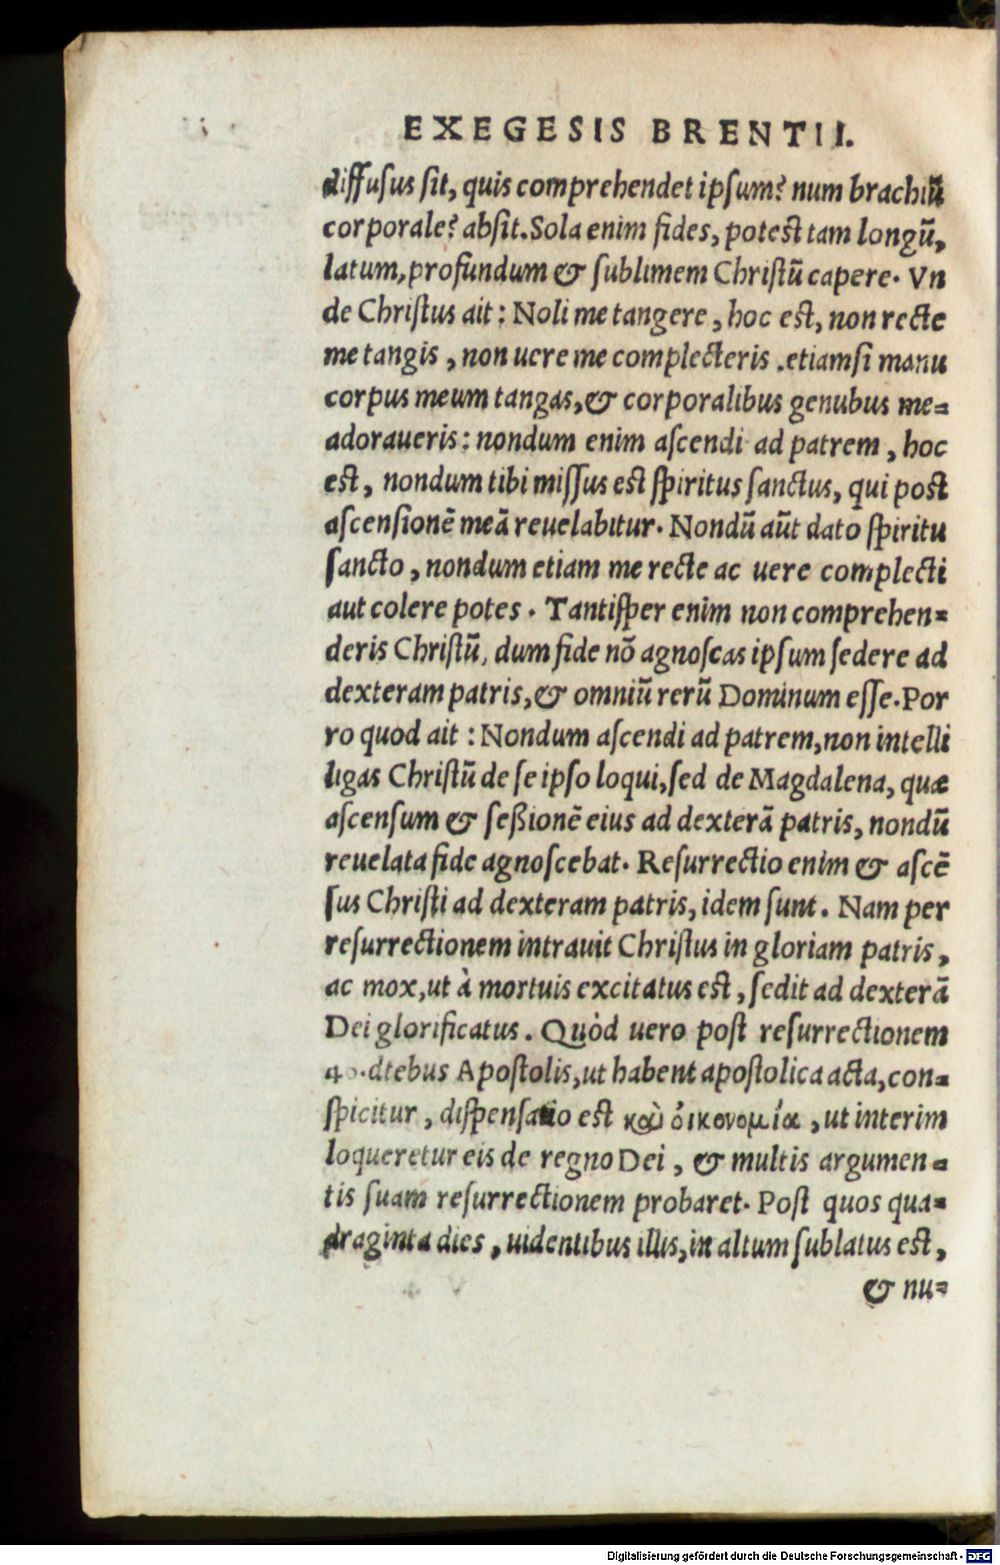 EXEGESIS BRENTII.
diffusus sit, quis comprehendet ipsum? num brachiū
corporale? absit. Sola enim fides, potest tam longū,
latum, profundum & sublimem Christū capere. Vn
de Christus ait: Noli me tangere, hoc est, non recte
me tangis, non uere me complecteris. etiamsi manu
corpus meum tangas, & corporalibus genubus me=
adoraueris: nondum enim ascendi ad patrem, hoc
est, nondum tibi missus est spiritus sanctus, qui post
ascensionē meā reuelabitur. Nondū aūt dato spiritu
sancto, nondum etiam me recte ac uere complecti
aut colere potes. Tantisper enim non comprehen=
deris Christū, dum fide nō agnoscas ipsum sedere ad
dexteram patris, & omniū rerū Dominum esse. Por
ro quod ait: Nondum ascendi ad patrem, non intelli
ligas Christū de se ipso loqui, sed de Magdalena, quæ
ascensum & seßionē eius ad dexterā patris, nondū
reuelata fide agnoscebat. Resurrectio enim & ascē
sus Christi ad dexteram patris, idem sunt. Nam per
resurrectionem intrauit Christus in gloriam patris,
ac mox, ut à mortuis excitatus est, sedit ad dexterā
Dei glorificatus. Quòd uero post resurrectionem
40. diebus Apostolis, ut habent apostolica acta, con=
spicitur, dispensatio est καὶ ὀικονομία, ut interim
loqueretur eis de regno Dei, & multis argumen=
tis suam resurrectionem probaret. Post quos qua=
draginta dies, uidentibus illis, in altum sublatus est,
& nu=
Digitalisierung gefördert durch die Deutsche Forschungsgemeinschaft - DFG